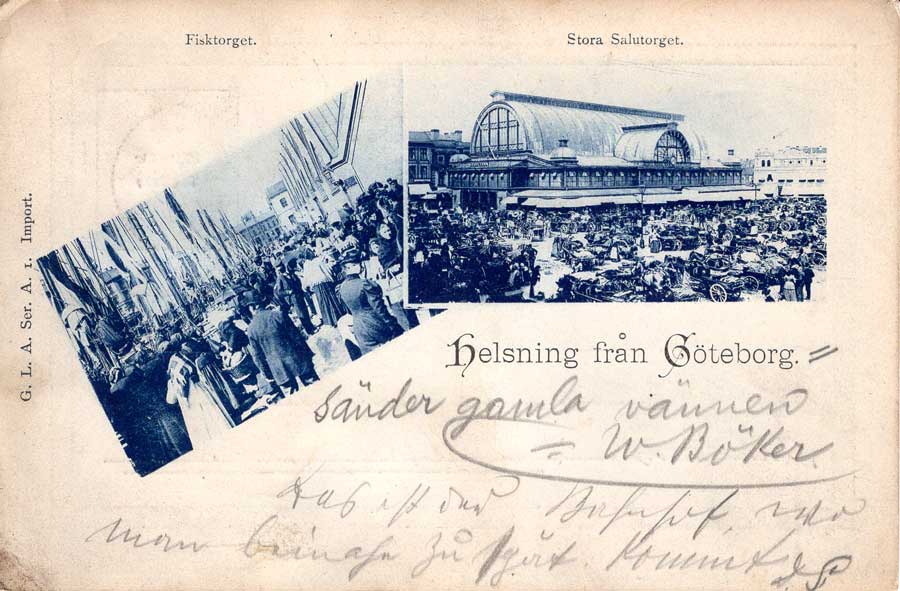 Fisktorget.
Stora Salutorget.
G. L. A. Ser. A. 1. Import.
Helsning från Göteborg. =
sänder gamla vännen
= W. Böker
Das ist der Bahnhof, wo
man beinahe zu spät kommt